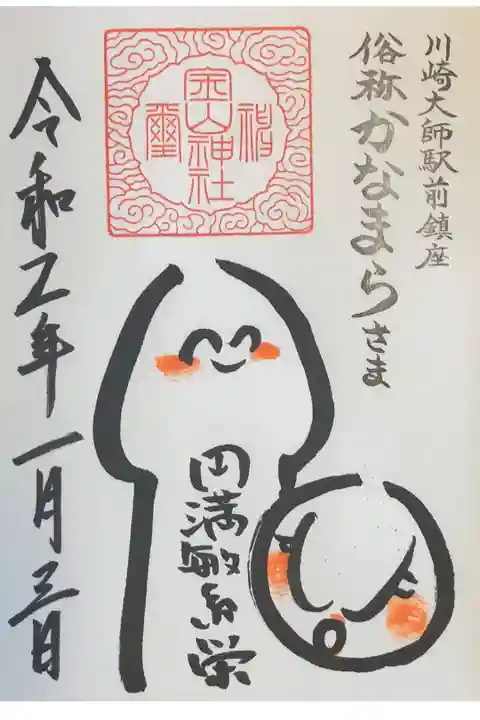 川崎大師駅前鎮座
俗称かなまらさま
金山神社
円満繁栄
令和二年一月三日